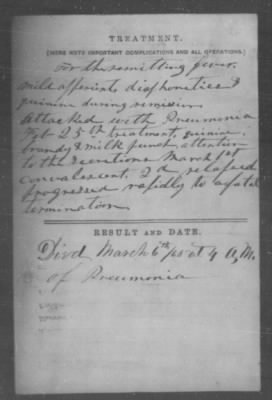 TREATMENT.
[HERE NOTE IMPORTANT COMPLICATIONS AND ALL OPERATIONS.]
For the remitting fever.
mild afferints diaphoretics &
quinine during remission
Attacked with Pneumonia
Feb 25th treatment, quinine,
brandy & milk punch attention
to the secretions March 1st
convalescent, 2d relapsed
progressed rapidly to a fatal
termination
RESULT AND DATE.
Died March 6th /65 at 4 A,M.
of Pneumonia